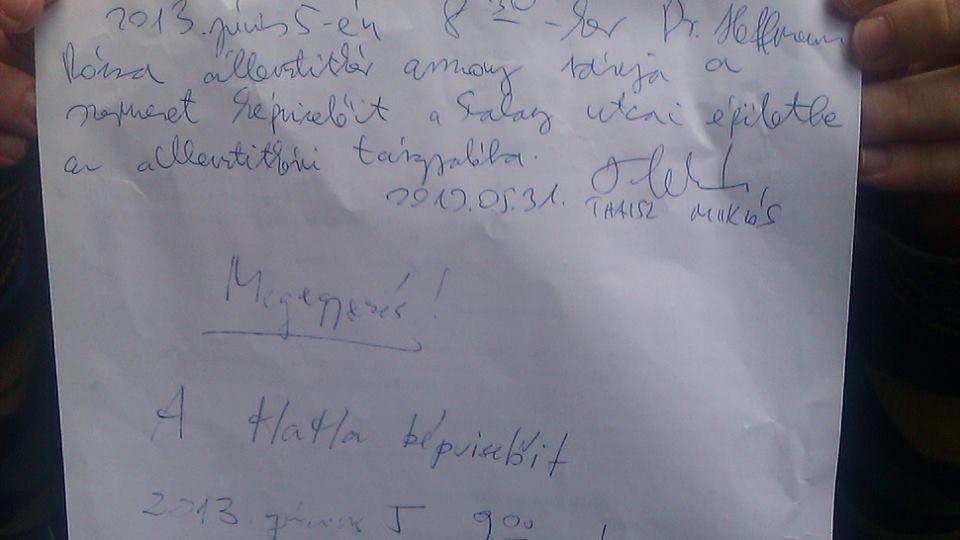 2013. június 5-én 8 30 -kor Dr. Hoffmann
Rózsa államtitkár asszony várja a
szervezet képviselőit a Szalay utcai épületbe
az államtitkári tárgyalóba.
2013.05.31.
THAISZ MIKLÓS
Megegyezés!
A HaHa képviselőit
2013. június 5 9 00